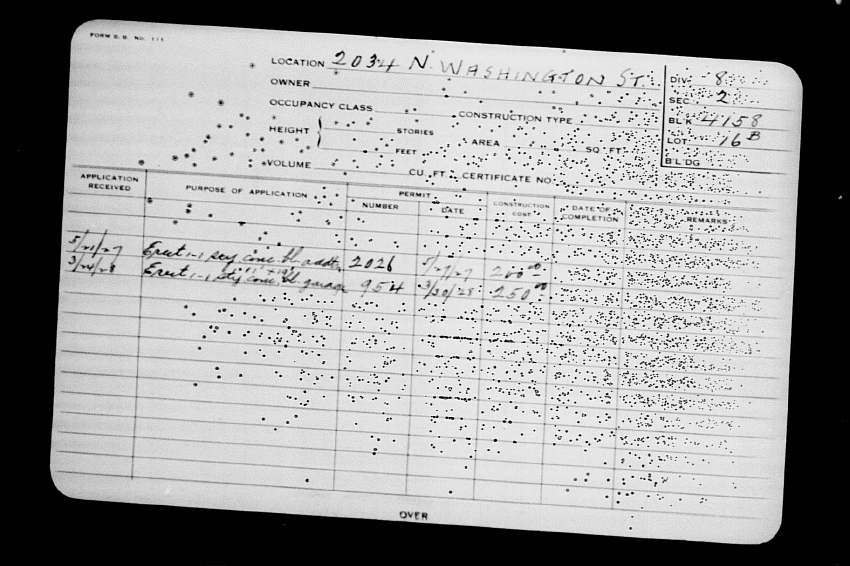 FORM B. B. No. 111
LOCATION 2034 N. WASHINGTON ST. DIV. 8
OWNER SEC. 2
OCCUPANCY CLASS CONSTRUCTION TYPE BLK 4158
HEIGHT STORIES AREA SQ. FT. LOT 16 B
FEET B'L'DG
VOLUME CU. FT. CERTIFICATE NO.
APPLICATION RECEIVED PURPOSE OF APPLICATION PERMIT NUMBER DATE CONSTRUCTION COST DATE OF COMPLETION REMARKS
Erect 1-1 sty conc bl addtn 2026 260.00
11' x 19'
3/24/28 Erect 1-1 sty conc bl garage 954 3/30/28 250.00
OVER